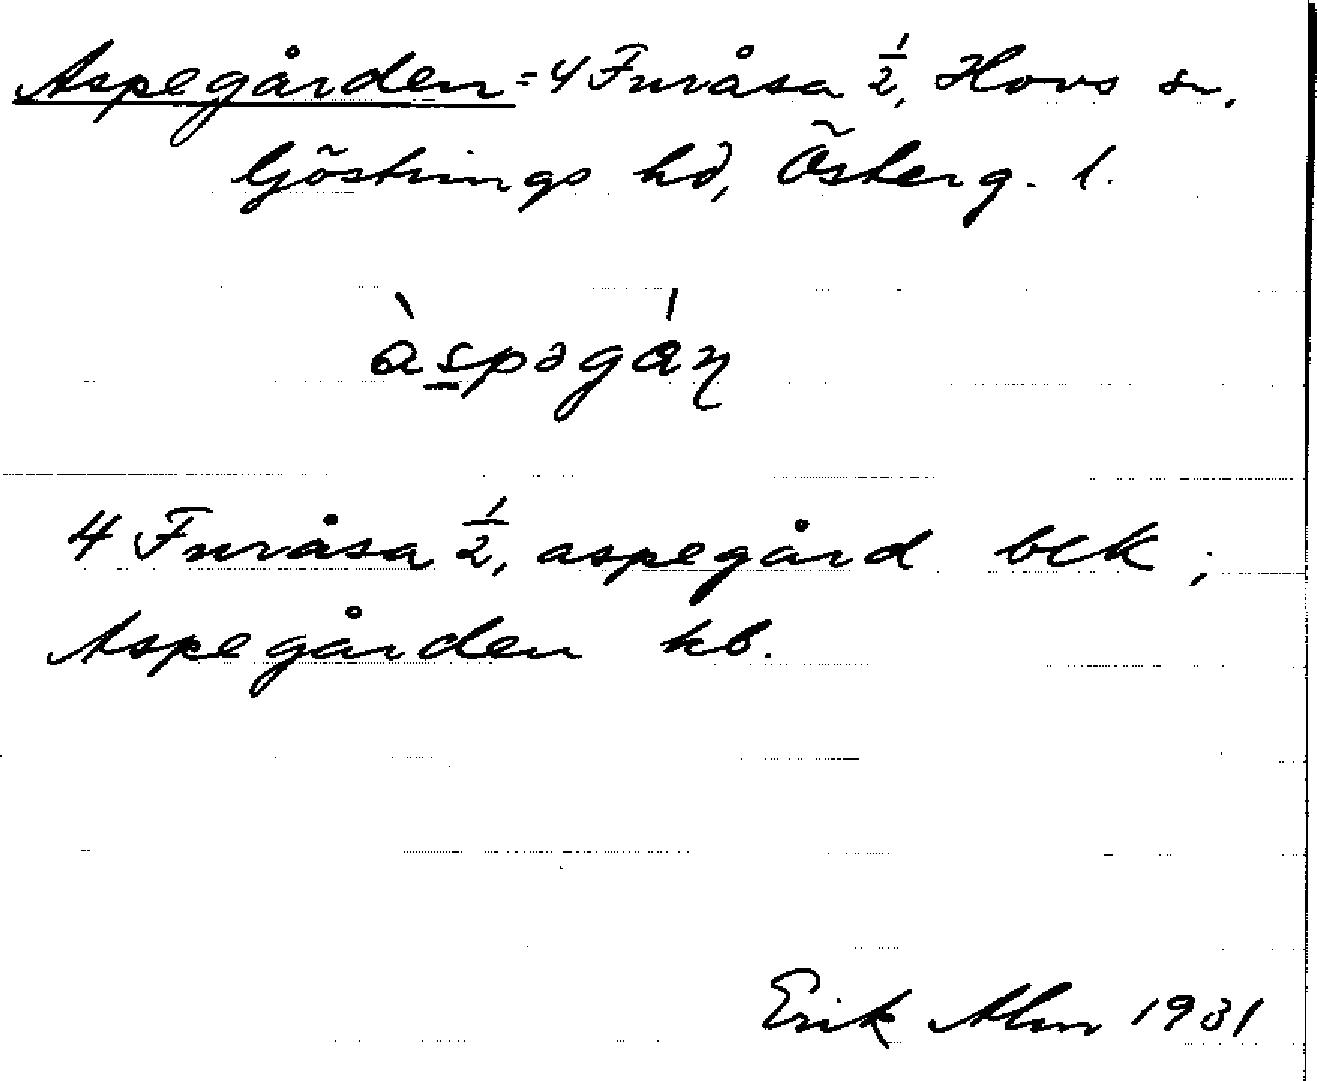 Aspegården = 4 Furåsa 1/2, Hovs sn,
Göstrings hd, Österg. l.
àspəgán
4 Furåsa 1/2, aspegård bck;
Aspegården kb.
Erik Alm 1931